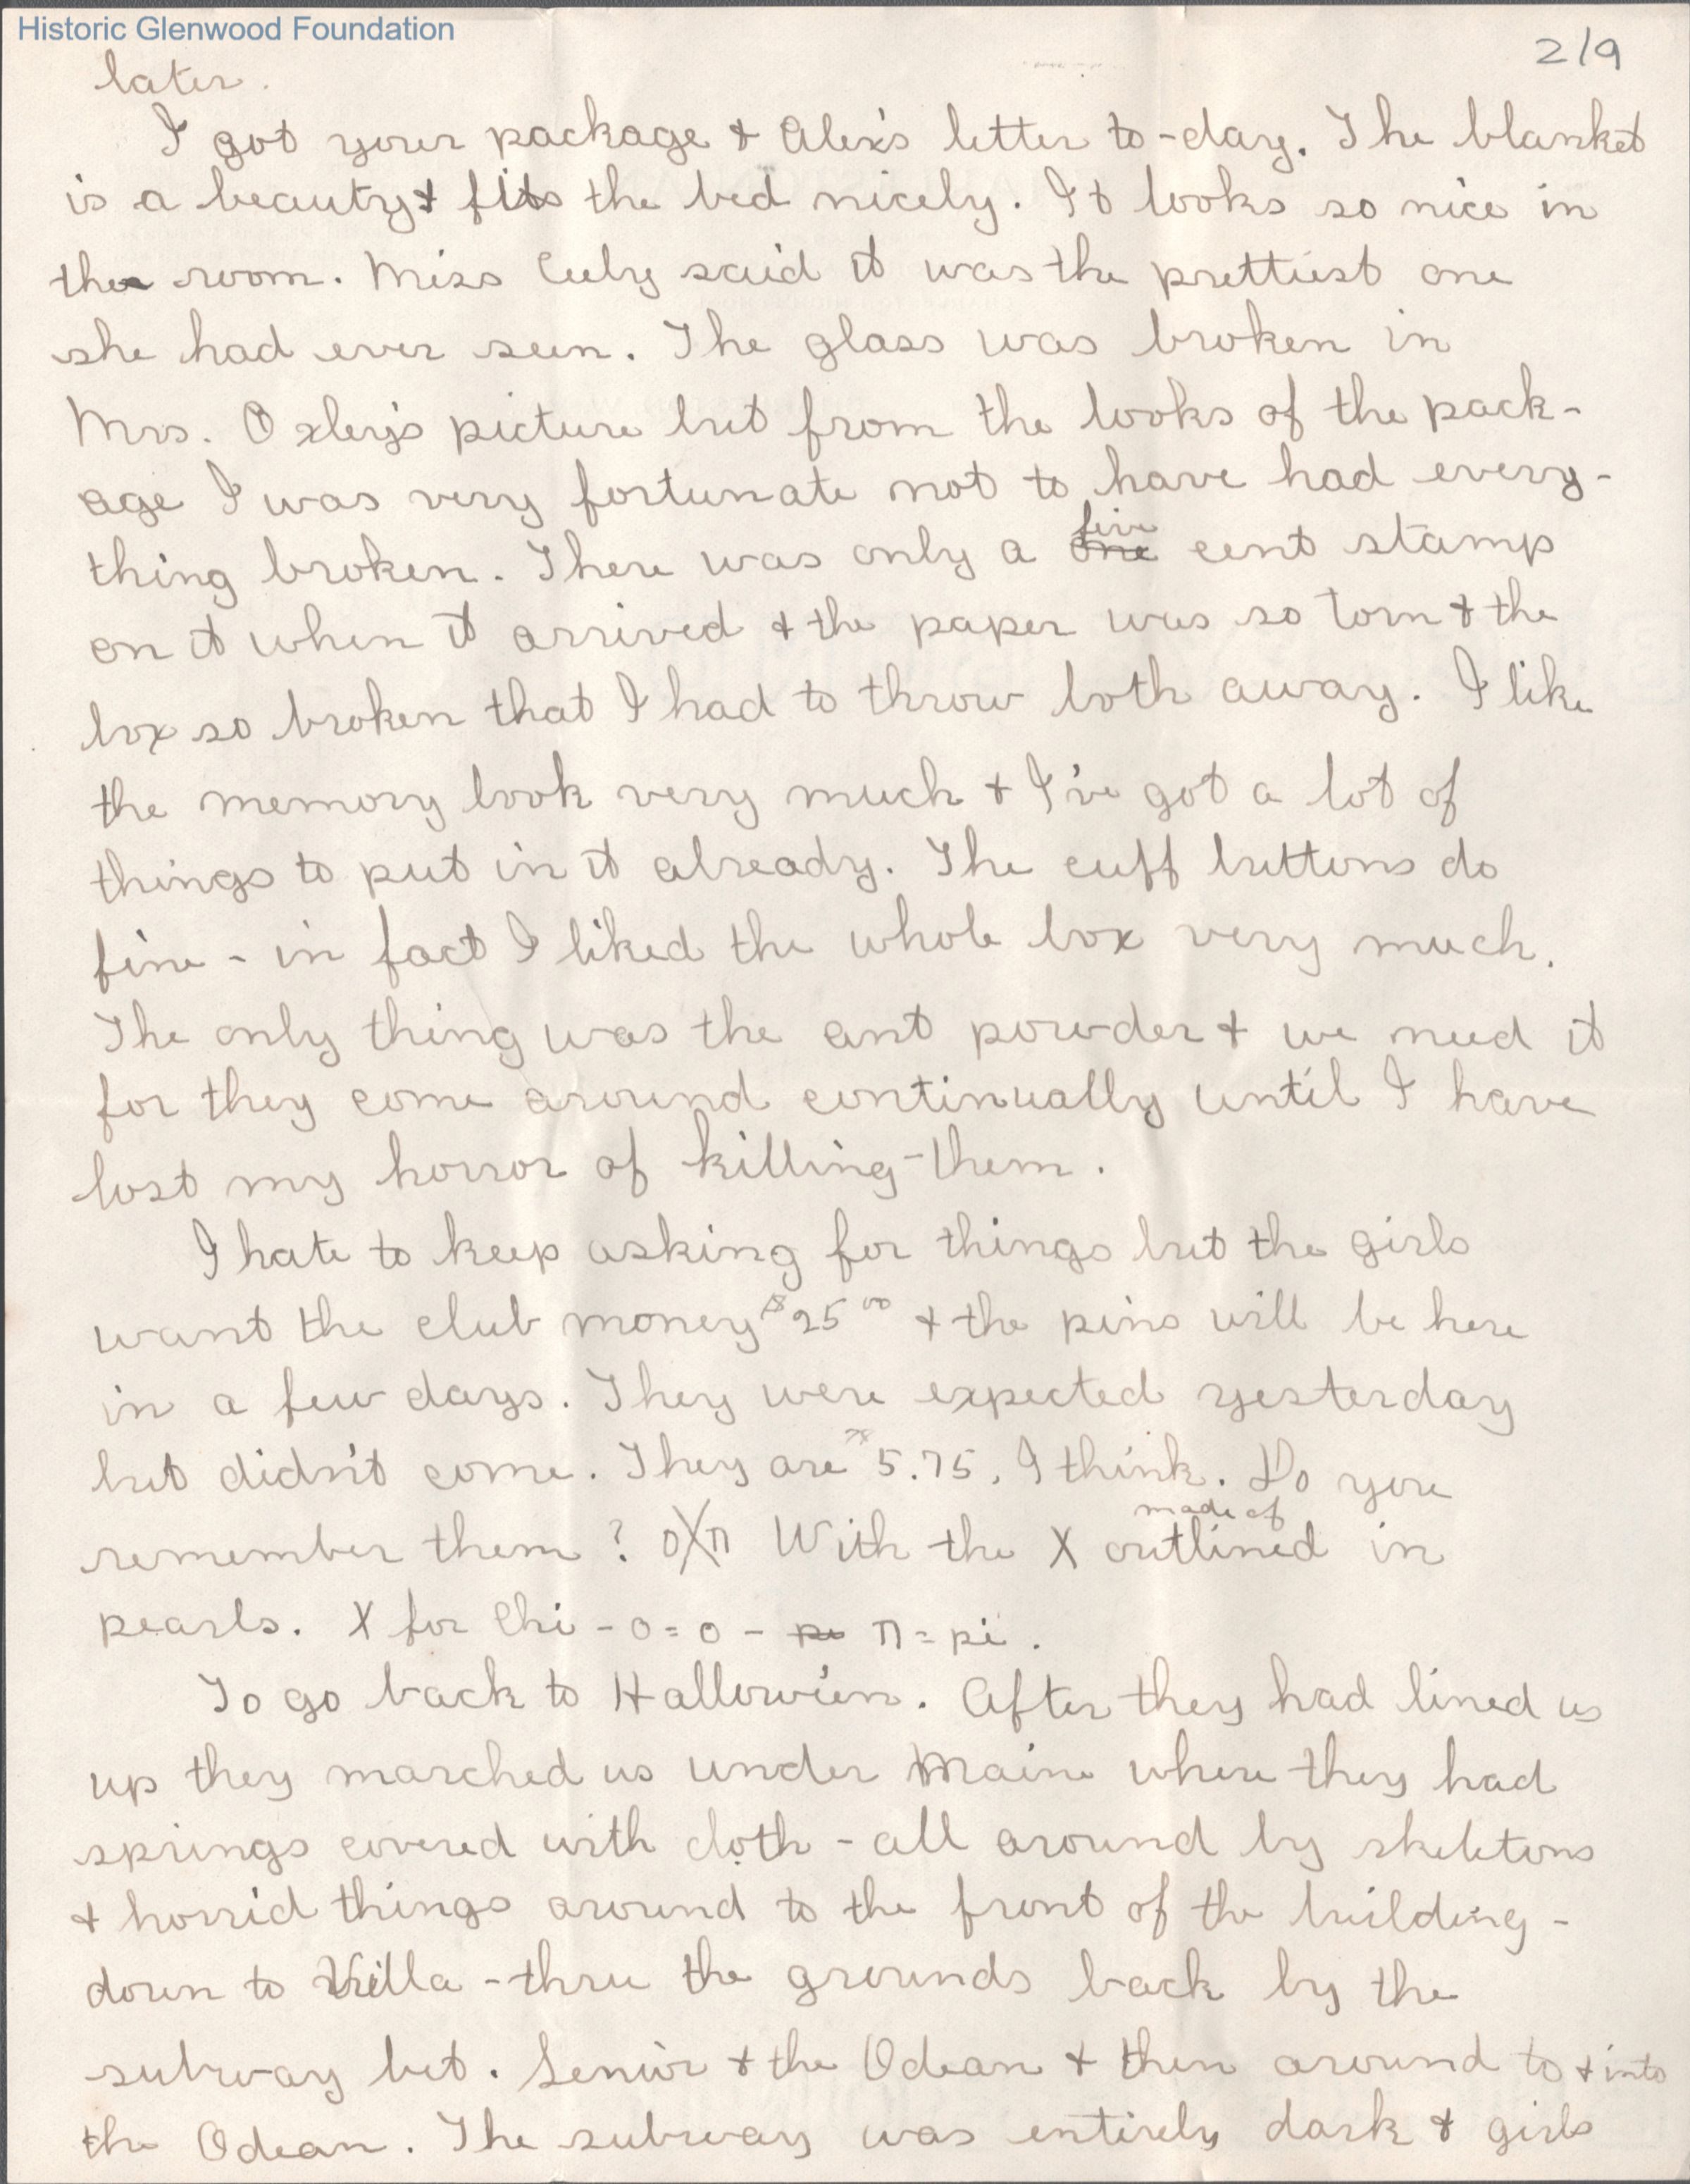 Historic Glenwood Foundation
2/9
later.
I got your package & Alex's letter to-day. The blanket
is a beauty & fits the bed nicely. It looks so nice in
the room. Miss Culy said it was the prettiest one
she had ever seen. The glass was broken in
Mrs. Oxley's picture but from the looks of the pack-
age I was very fortunate not to have had every-
thing broken. There was only a one five cent stamp
on it when it arrived & the paper was so torn & the
box so broken that I had to throw both away. I like
the memory book very much & I've got a lot of
things to put in it already. The cuff buttons do
fine - in fact I liked the whole box very much.
The only thing was the ant powder & we need it
for they come around continually until I have
lost my horror of killing-them.
I hate to keep asking for things but the girls
want the club money $25.00 & the pins will be here
in a few days. They were expected yesterday
but didn't come. They are $5.75, I think. Do you
remember them? OXΠ With the X made of outlined in
pearls. X for Chi - O = O - pi Π = pi.
To go back to Hallowe'en. After they had lined us
up they marched us under Main where they had
springs covered with cloth - all around by skeletons
& horrid things around to the front of the building -
down to Villa - thru the grounds back by the
subway bet. Senior & the Odean & then around to & into
the Odean. The subway was entirely dark & girls